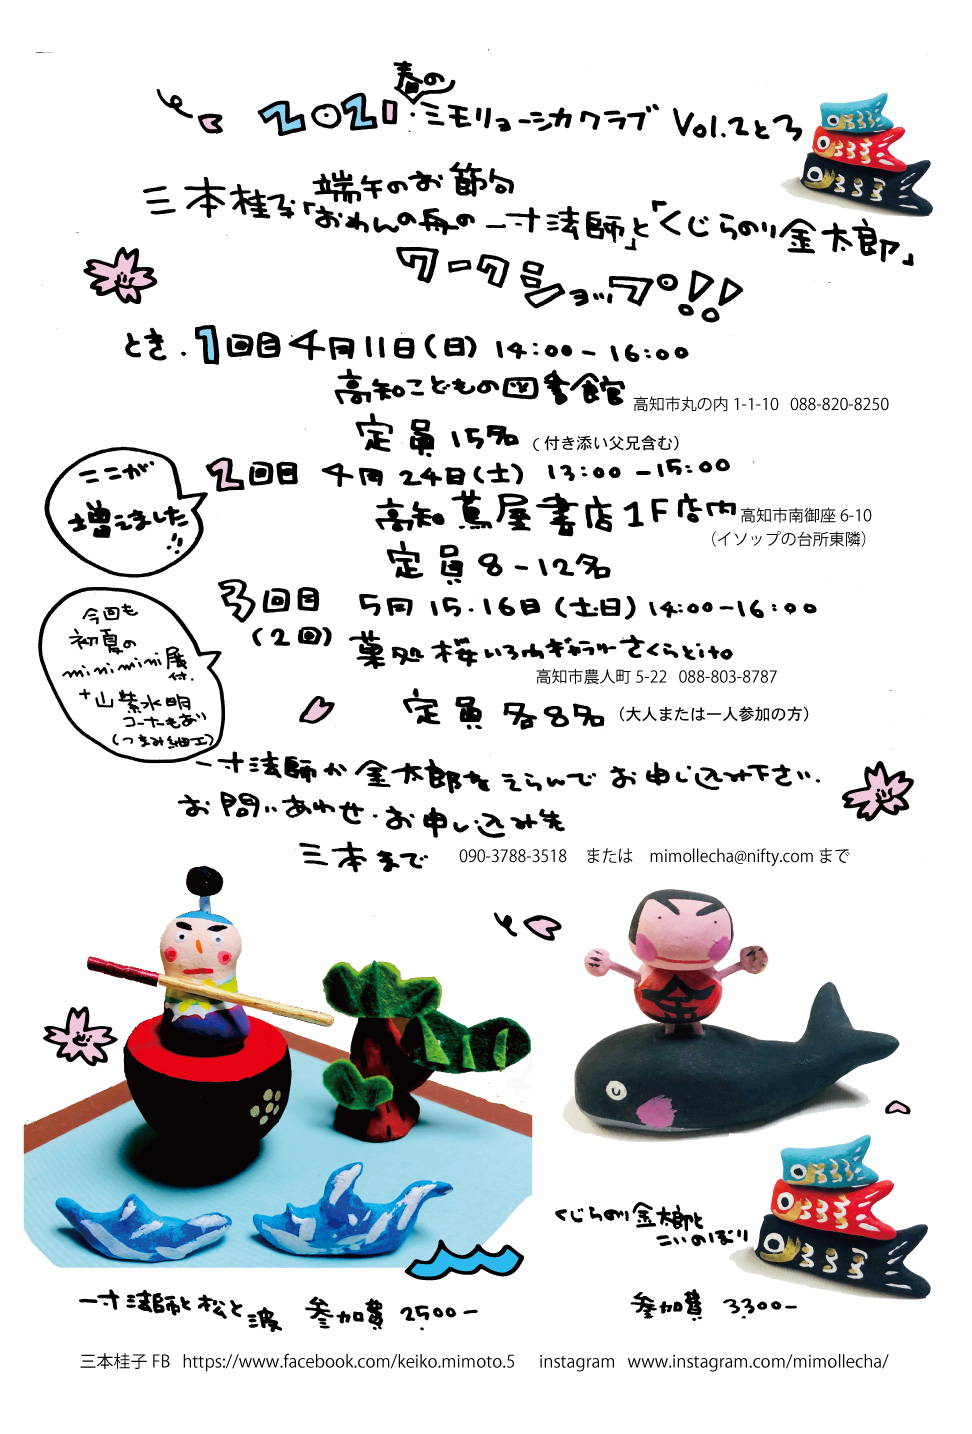 春の
2021・ミモリョーシカクラブ Vol.2と3
三本桂子 端午のお節句
「おわんの舟の一寸法師」と「くじらのり金太郎」
ワークショップ!!
とき・1回目 4月11日(日) 14:00-16:00
高知こどもの図書館 高知市丸の内 1-1-10 088-820-8250
定員15名 (付き添い父兄含む)
ここが
増えました!!
2回目 4月24日(土) 13:00-15:00
高知蔦屋書店1F店内 高知市南御座 6-10
(イソップの台所東隣)
定員8-12名
3回目 5月15.16日(土日) 14:00-16:00
(2回) 菓処 桜いろは ギャラリーさくらとito
高知市農人町 5-22 088-803-8787
定員各8名 (大人または一人参加の方)
今回も
初夏の
mini mini展
付.
+山紫水明
コーナーもあり
(つまみ細工)
一寸法師か金太郎をえらんでお申し込み下さい.
お問いあわせ・お申し込み先
三本まで 090-3788-3518 または mimollecha@nifty.com まで
金
くじらのり金太郎と
こいのぼり
一寸法師と松と波 参加費 2500-
参加費 3300-
三本桂子 FB https://www.facebook.com/keiko.mimoto.5 instagram www.instagram.com/mimollecha/